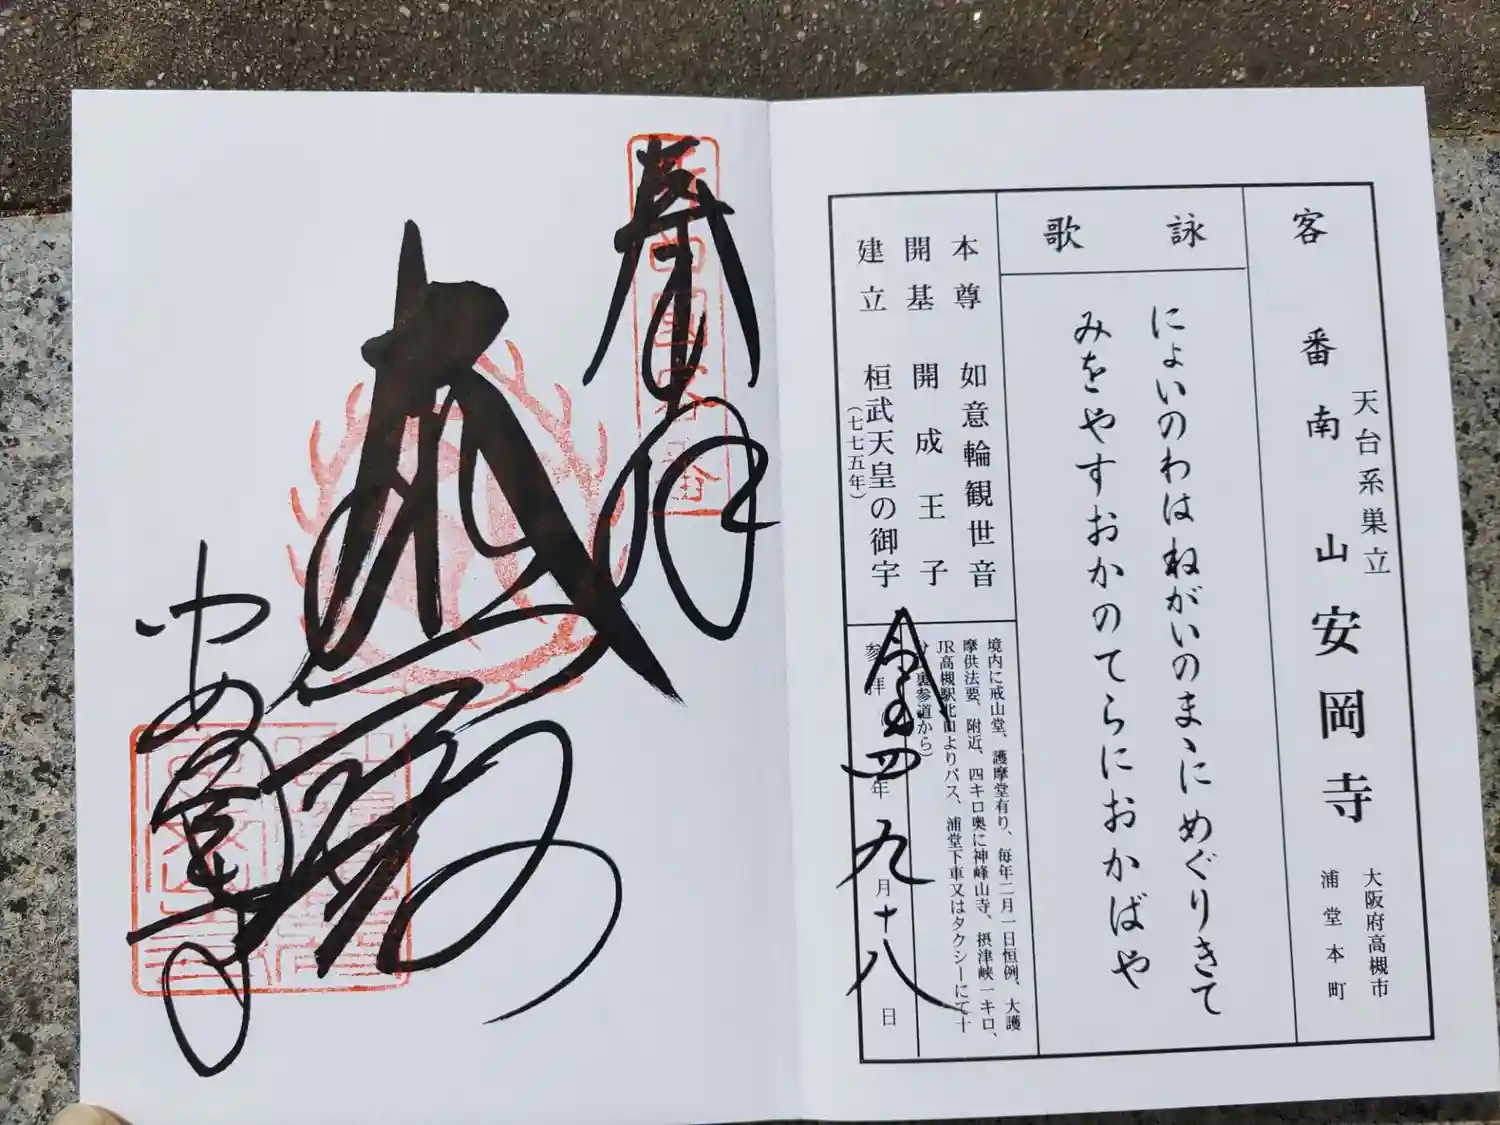 客番
南山安岡寺
天台系単立
大阪府高槻市
浦堂本町
詠歌
によいのわはねがいのまゝにめぐりきて
みをやすおかのてらにおかばや
本尊 如意輪観世音
開基 開成王子
建立 桓武天皇の御宇
(七七五年)
境内に戒山堂、護摩堂有り、毎年二月一日恒例、大護
摩供法要、附近、四キロ奥に神峰山寺、摂津峡一キロ、
JR高槻駅北口よりバス、浦堂下車又はタクシーにて十
分(裏参道から)
参拝 令和四年九月十八日
奉拝